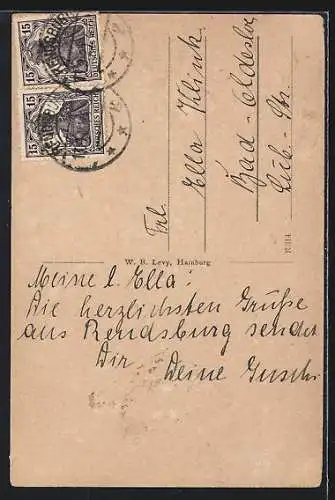 15 15
DEUTSCHES REICH
15 15
DEUTSCHES REICH
Frl.
Ella Klink
Bad-Oldesloe
Lüb.-Str.
W. R. Levy, Hamburg
Meine l. Ella!
Die herzlichsten Grüße
aus Rendsburg sendet
Dir
Deine Guschi